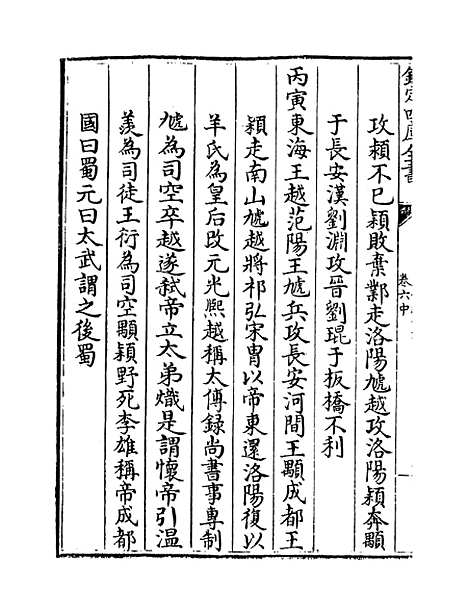 欽定四庫全書
卷六中
攻穎不已穎敗棄鄴走洛陽虓越攻洛陽穎奔顒
于長安漢劉淵攻晉劉琨于板橋不利
丙寅東海王越范陽王虓兵攻長安河間王顒成都王
穎走南山虓越將祁弘宋胄以帝東還洛陽復以
羊氏為皇后改元光熙越稱太傅録尚書事專制
虓為司空卒越遂弒帝立太弟熾是謂懷帝引温
羨為司徒王衍為司空顒穎野死李雄稱帝成都
國曰蜀元曰太武謂之後蜀